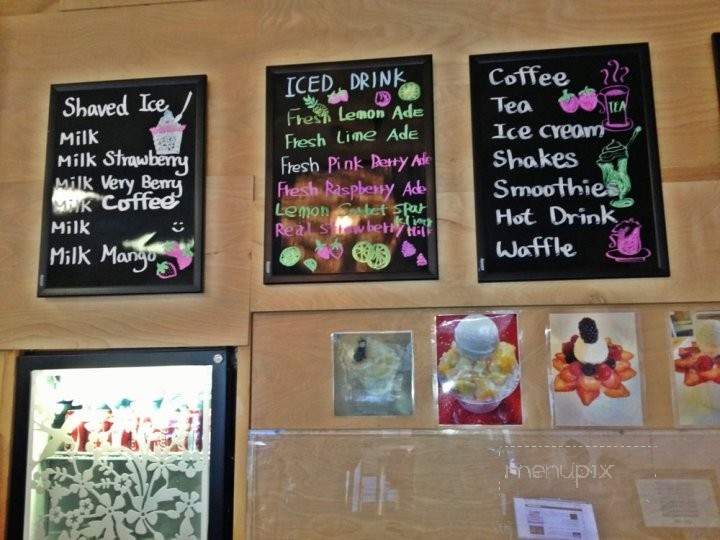 Shaved Ice
Milk
Milk Strawberry
Milk Very Berry
Milk Coffee
Milk
Milk Mango
ICED DRINK
Fresh Lemon Ade
Fresh Lime Ade
Fresh Pink Berry Ade
Fresh Raspberry Ade
Lemon Sorbet Spar
kling
Real strawberry Milk
Coffee
Tea
TEA
Ice cream
Shakes
Smoothies
Hot Drink
Waffle
menupix